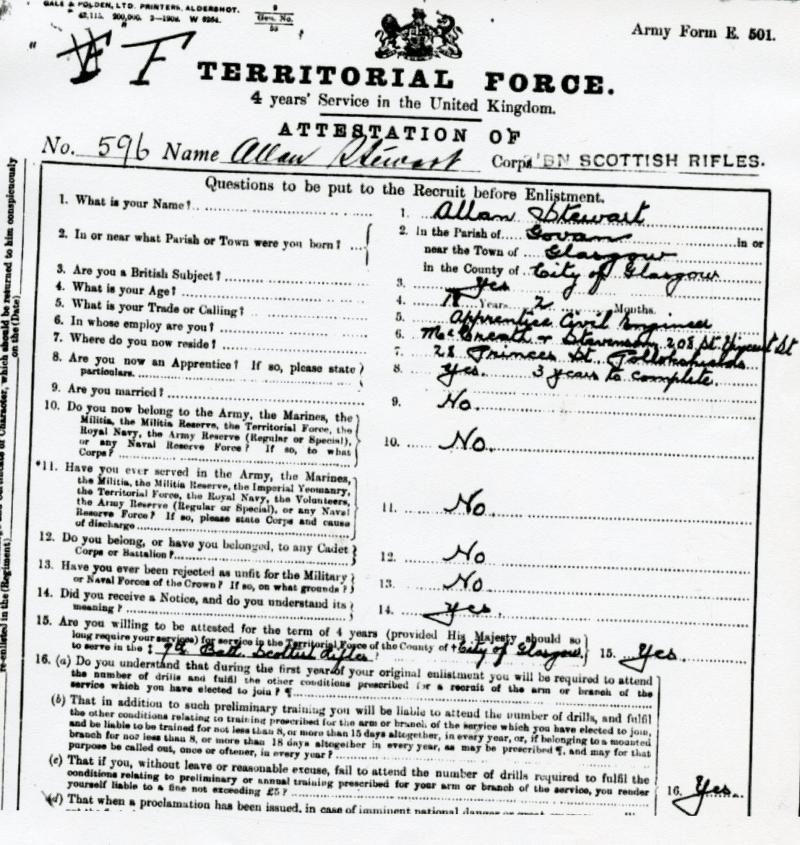 GALE & POLDEN, LTD. PRINTERS, ALDERSHOT.
200,000. 2—1908. W 6264.
Gen. No.
Army Form E. 501.
F F
TERRITORIAL FORCE.
4 years' Service in the United Kingdom.
ATTESTATION OF
No. 596 Name Allan Stewart Corps BN SCOTTISH RIFLES.
Questions to be put to the Recruit before Enlistment.
1. What is your Name? 1. Allan Stewart
2. In or near what Parish or Town were you born? 2. In the Parish of Govan in or
near the Town of Glasgow
in the County of City of Glasgow
3. Are you a British Subject? 3. Yes
4. What is your Age? 4. 18 Years 2 Months.
5. What is your Trade or Calling? 5. Apprentice Civil Engineer
6. In whose employ are you? 6. McCreath & Stevenson 208 St. Vincent St
7. Where do you now reside? 7. 28 Princes St. Pollokshields
8. Are you now an Apprentice? If so, please state 8. Yes. 3 years to complete.
particulars.
9. Are you married? 9. No.
10. Do you now belong to the Army, the Marines, the
Militia, the Militia Reserve, the Territorial Force, the
Royal Navy, the Army Reserve (Regular or Special),
or any Naval Reserve Force? If so, to what 10. No.
Corps?
*11. Have you ever served in the Army, the Marines,
the Militia, the Militia Reserve, the Imperial Yeomanry,
the Territorial Force, the Royal Navy, the Volunteers,
the Army Reserve (Regular or Special), or any Naval
Reserve Force? If so, please state Corps and cause 11. No.
of discharge
12. Do you belong, or have you belonged, to any Cadet 12. No
Corps or Battalion?
13. Have you ever been rejected as unfit for the Military 13. No
or Naval Forces of the Crown? If so, on what grounds?
14. Did you receive a Notice, and do you understand its 14. Yes.
meaning?
15. Are you willing to be attested for the term of 4 years (provided His Majesty should so
long require your services) for service in the Territorial Force of the County of City of Glasgow, 15. Yes.
to serve in the 9th Batt. Scottish Rifles?
16. (a) Do you understand that during the first year of your original enlistment you will be required to attend
the number of drills and fulfil the other conditions prescribed for a recruit of the arm or branch of the
service which you have elected to join? ¶
(b) That in addition to such preliminary training you will be liable to attend the number of drills, and fulfil
the other conditions relating to training prescribed for the arm or branch of the service which you have elected to join,
and be liable to be trained for not less than 8, or more than 15 days altogether, in every year, or, if belonging to a mounted
branch for not less than 8, or more than 18 days altogether in every year, as may be prescribed ¶, and may for that
purpose be called out, once or oftener, in every year?
(c) That if you, without leave or reasonable excuse, fail to attend the number of drills required to fulfil the
conditions relating to preliminary or annual training prescribed for your arm or branch of the service, you render
yourself liable to a fine not exceeding £5? 16. Yes.
(d) That when a proclamation has been issued, in case of imminent national danger or great
which should be returned to him conspicuously
on the (Date)
re-enlisted in the (Regiment)